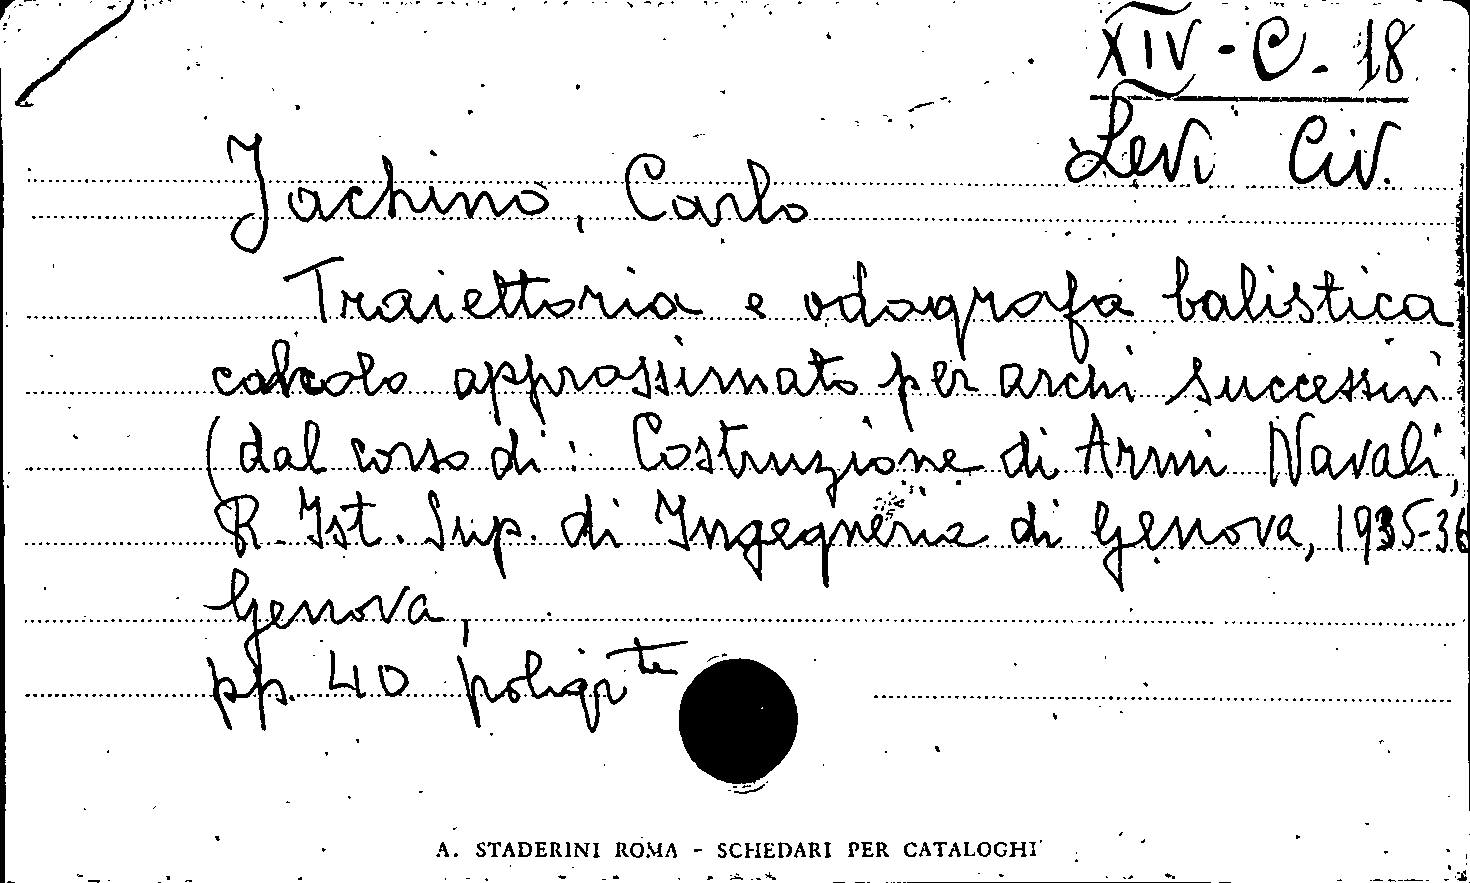 XIV - C. 18
Levi Civ.
Jachino, Carlo
Traiettoria e odografa balistica
calcolo approssimato per archi successivi
(dal corso di: Costruzione di Armi Navali,
R. Ist. Sup. di Ingegneria di Genova, 1935-36
Genova,
pp. 40 poligrte
A. STADERINI ROMA - SCHEDARI PER CATALOGHI